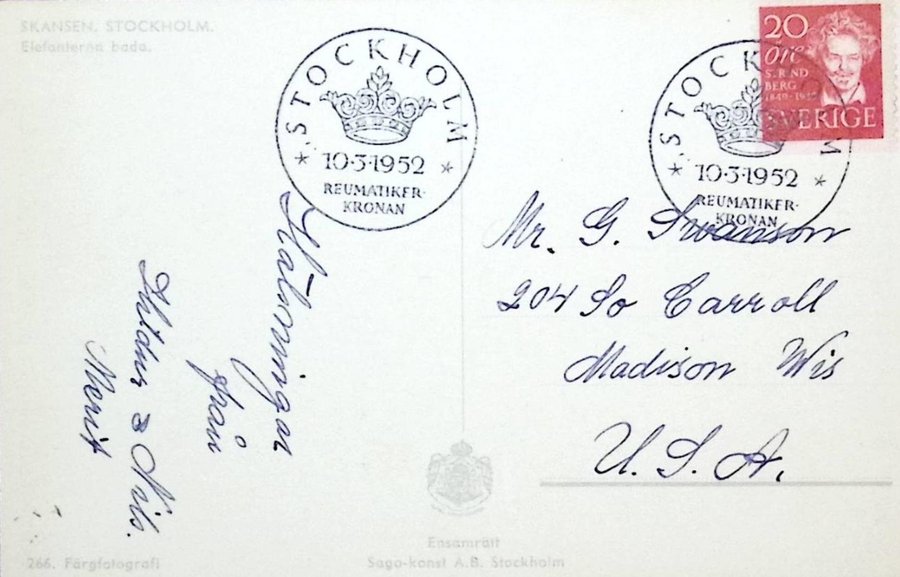 SKANSEN. STOCKHOLM.
Elefanterna bada.
STOCKHOLM
10·3·1952
REUMATIKER-
KRONAN
STOCKHOLM
10·3·1952
REUMATIKER-
KRONAN
20
öre
STRIND
BERG
SVERIGE
Hälsningar
från
& Nils.
Merit
Mr. G. Swanson
204 So Carroll
Madison Wis
U. S. A.
Ensamrätt
Sago-konst A.B. Stockholm
266. Färgfotografi